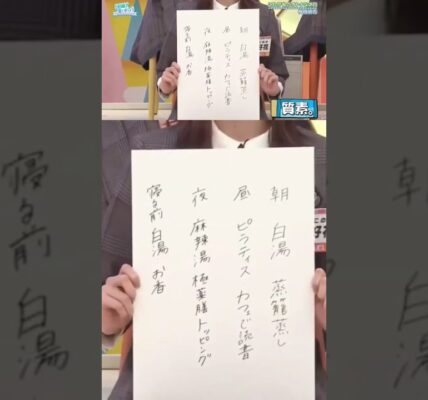 朝 白湯 蒸籠蒸し
昼 ピラティス カフェで読書
夜 麻辣湯極薬膳トッピング
寝る前 白湯 お香
質素
朝 白湯 蒸籠蒸し
昼 ピラティス カフェで読書
夜 麻辣湯極薬膳トッピング
寝る前 白湯 お香
朝 白湯
寝る前 白湯